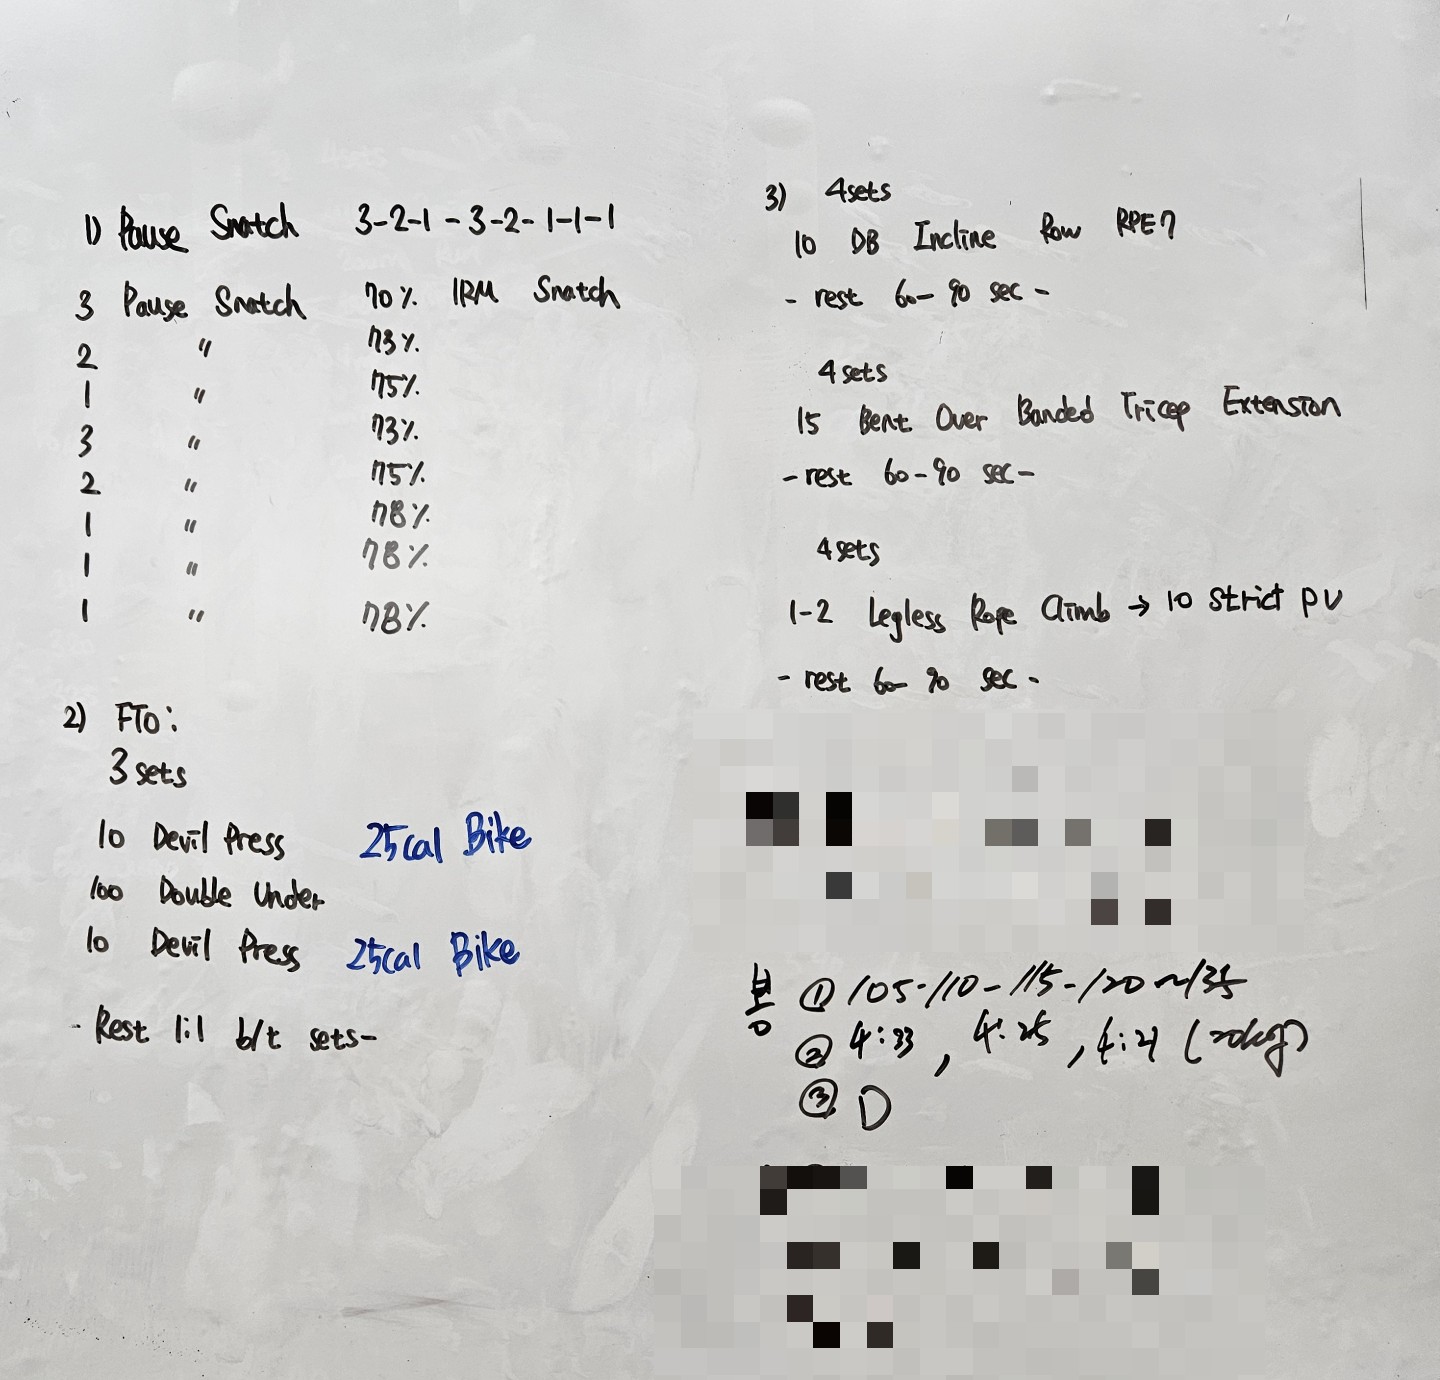 1) Pause Snatch 3-2-1-3-2-1-1-1
3 Pause Snatch 70% 1RM Snatch
2 " 73%
1 " 75%
3 " 73%
2 " 75%
1 " 78%
1 " 78%
1 " 78%
2) FTO:
3 sets
10 Devil Press 25cal Bike
100 Double Under
10 Devil Press 25cal Bike
- Rest 1:1 b/t sets-
3) 4sets
10 DB Incline Row RPE7
- rest 60-90 sec -
4sets
15 Bent Over Banded Tricep Extension
- rest 60-90 sec -
4sets
1-2 Legless Rope Climb → 10 Strict PU
- rest 60-90 sec -
봉 ① 105-110-115-120~135
② 4:33, 4:25, 4:21 (20kg)
③ D